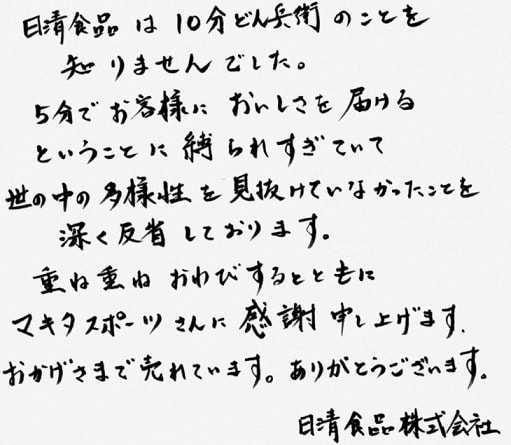 日清食品は10分どん兵衛のことを
知りませんでした。
5分でお客様においしさを届ける
ということに縛られすぎていて
世の中の多様性を見抜けていなかったことを
深く反省しております。
重ね重ねおわびするとともに
マキタスポーツさんに感謝申し上げます.
おかげさまで売れています。ありがとうございます。
日清食品株式会社